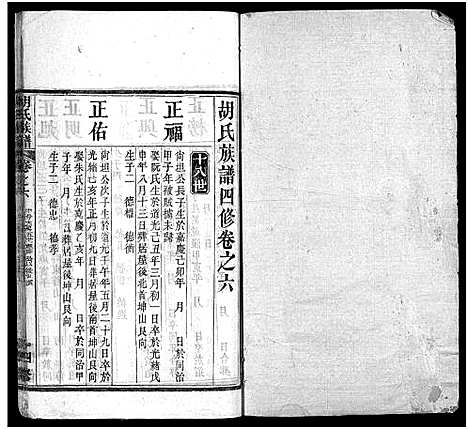 胡氏族譜四修卷之六
十八世
正福
尙坦公長子生於嘉慶己卯年 月 日於同治
甲子年被賊擄未歸
娶阮氏生於道光己丑年三月初一日卒於光緒戊
申年八月十三日葬居屋後北首坤山艮向
生子二 德 德衡
正佑
尙坦公次子生於道光壬午年五月二十九日卒於
光緒己亥年正月初九日葬居屋後南首坤山艮向
娶朱氏生於嘉慶乙亥年 月 日卒於同治甲
子年 月 葬居屋後坤山艮向
生子二 德忠 德孝
胡氏族譜
卷之六